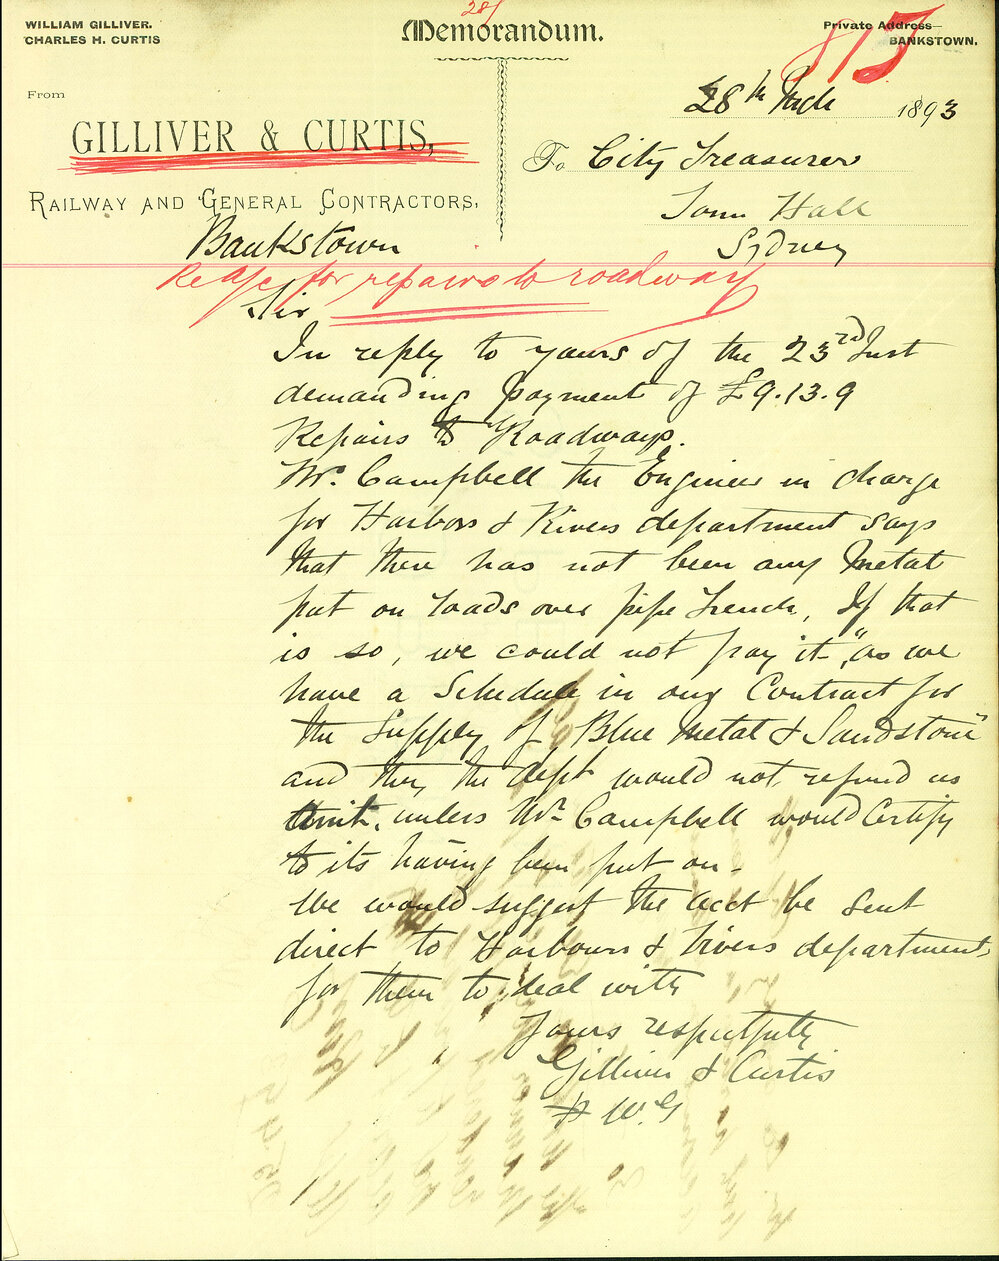 28/
WILLIAM GILLIVER.
CHARLES H. CURTIS
Memorandum.
Private Address
BANKSTOWN.
28th March 1893
From
GILLIVER & CURTIS,
RAILWAY AND GENERAL CONTRACTORS,
Bankstown
To City Treasurer
Town Hall
Sydney
Re a/c for repairs to roadway
Sir
In reply to yours of the 23rd Inst
demanding payment of £9.13.9
Repairs to Roadways.
Mr. Campbell the Engineer in charge
for Harbors & Rivers department says
that there has not been any Metal
put on roads over pipe trench, If that
is so, we could not pay it, "as we
have a Schedule in our Contract for
the Supply of Blue Metal & Sandstone"
and they the dept would not refund us
unless Mr. Campbell would Certify
to its having been put on -
We would suggest the acct be sent
direct to Harbours & Rivers department
for them to deal with
Yours respectfully
Gilliver & Curtis
W.G